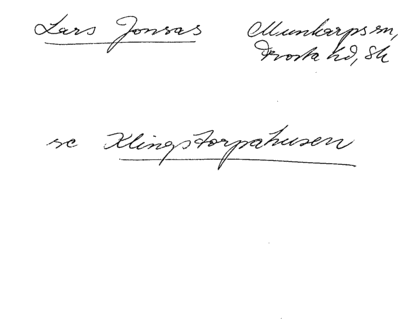 Lars Jonsas Munkarps sn,
Frosta hd, Sk
se Klingstorpahusen